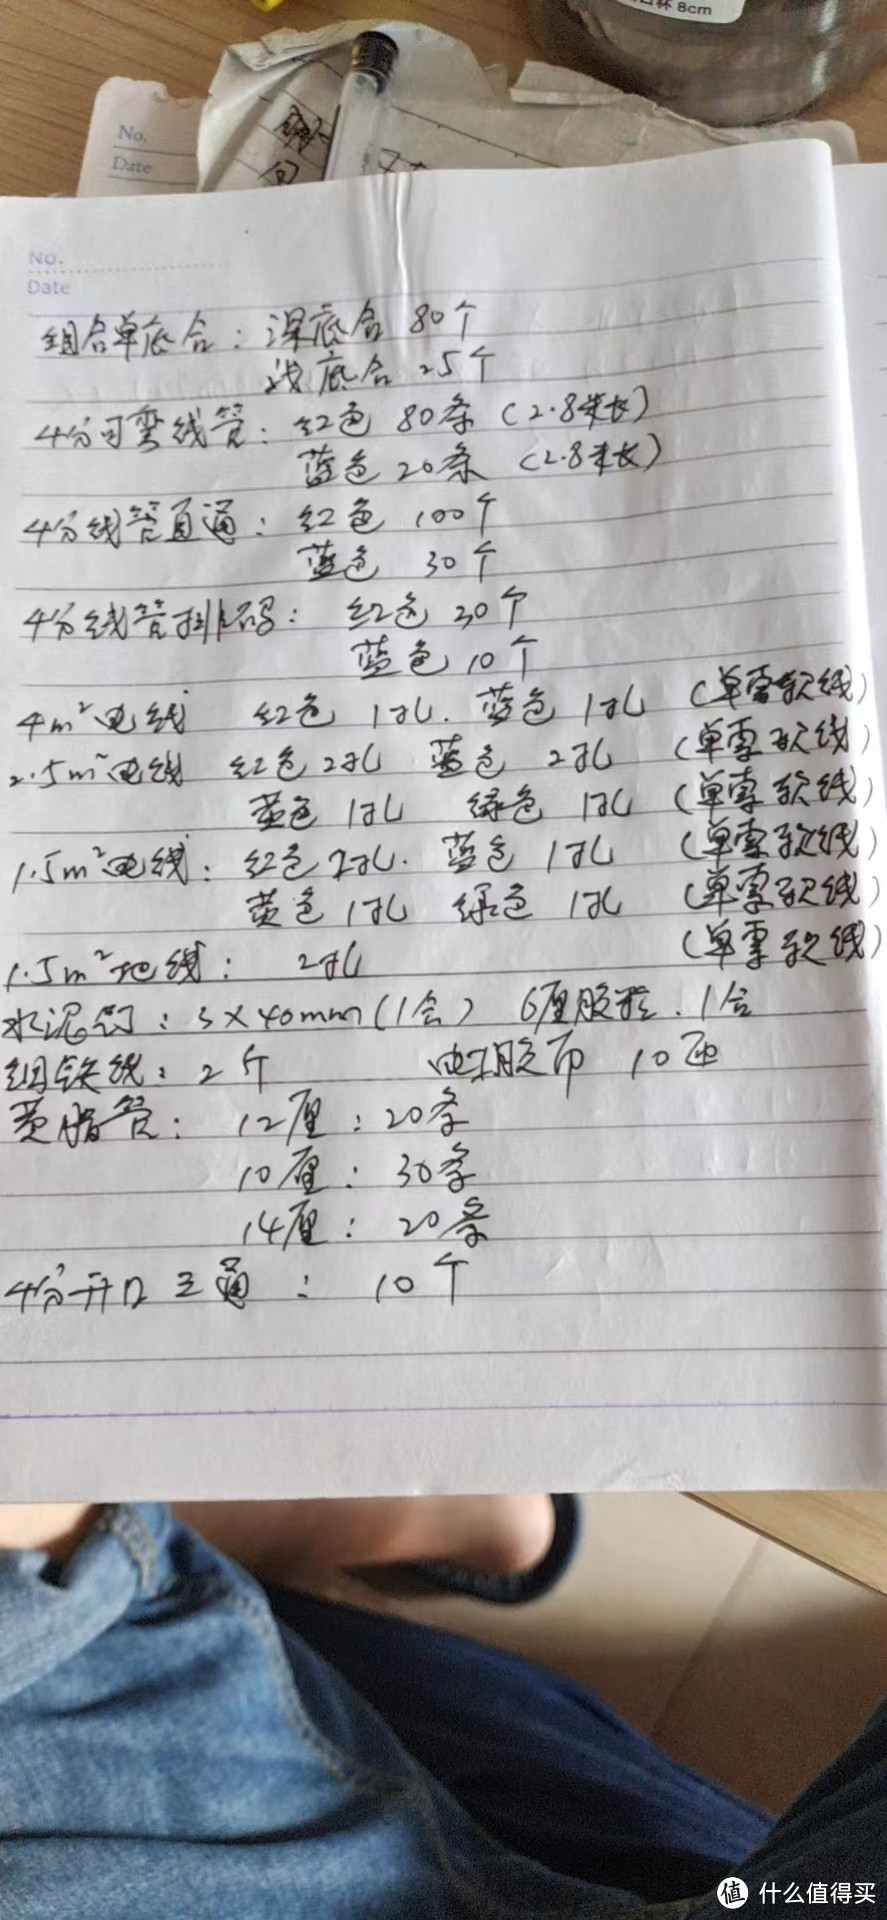 白杯 8cm
No.
Date
No.
Date
组合单底合：深底合 80个
浅底合 25个
4分可弯线管：红色 80条（2.8米长）
蓝色 20条（2.8米长）
4分线管直通：红色 100个
蓝色 30个
4分线管排码：红色 30个
蓝色 10个
4m²电线 红色 1扎．蓝色 1扎（单雷软线）
2.5m²电线 红色2扎 蓝色 2扎（单雷软线）
黄色 1扎 绿色 1扎（单雷软线）
1.5m²电线：红色 2扎．蓝色 1扎（单雷软线）
黄色 1扎 绿色 1扎（单雷软线）
1.5m²地线： 2扎（单雷软线）
水泥钉：3×40mm（1合） 6厘胶粒．1合
细铁线：2个 电胶布 10
黄腊管：12厘：20条
10厘：30条
14厘：20条
4分开口三通：10个
值 什么值得买